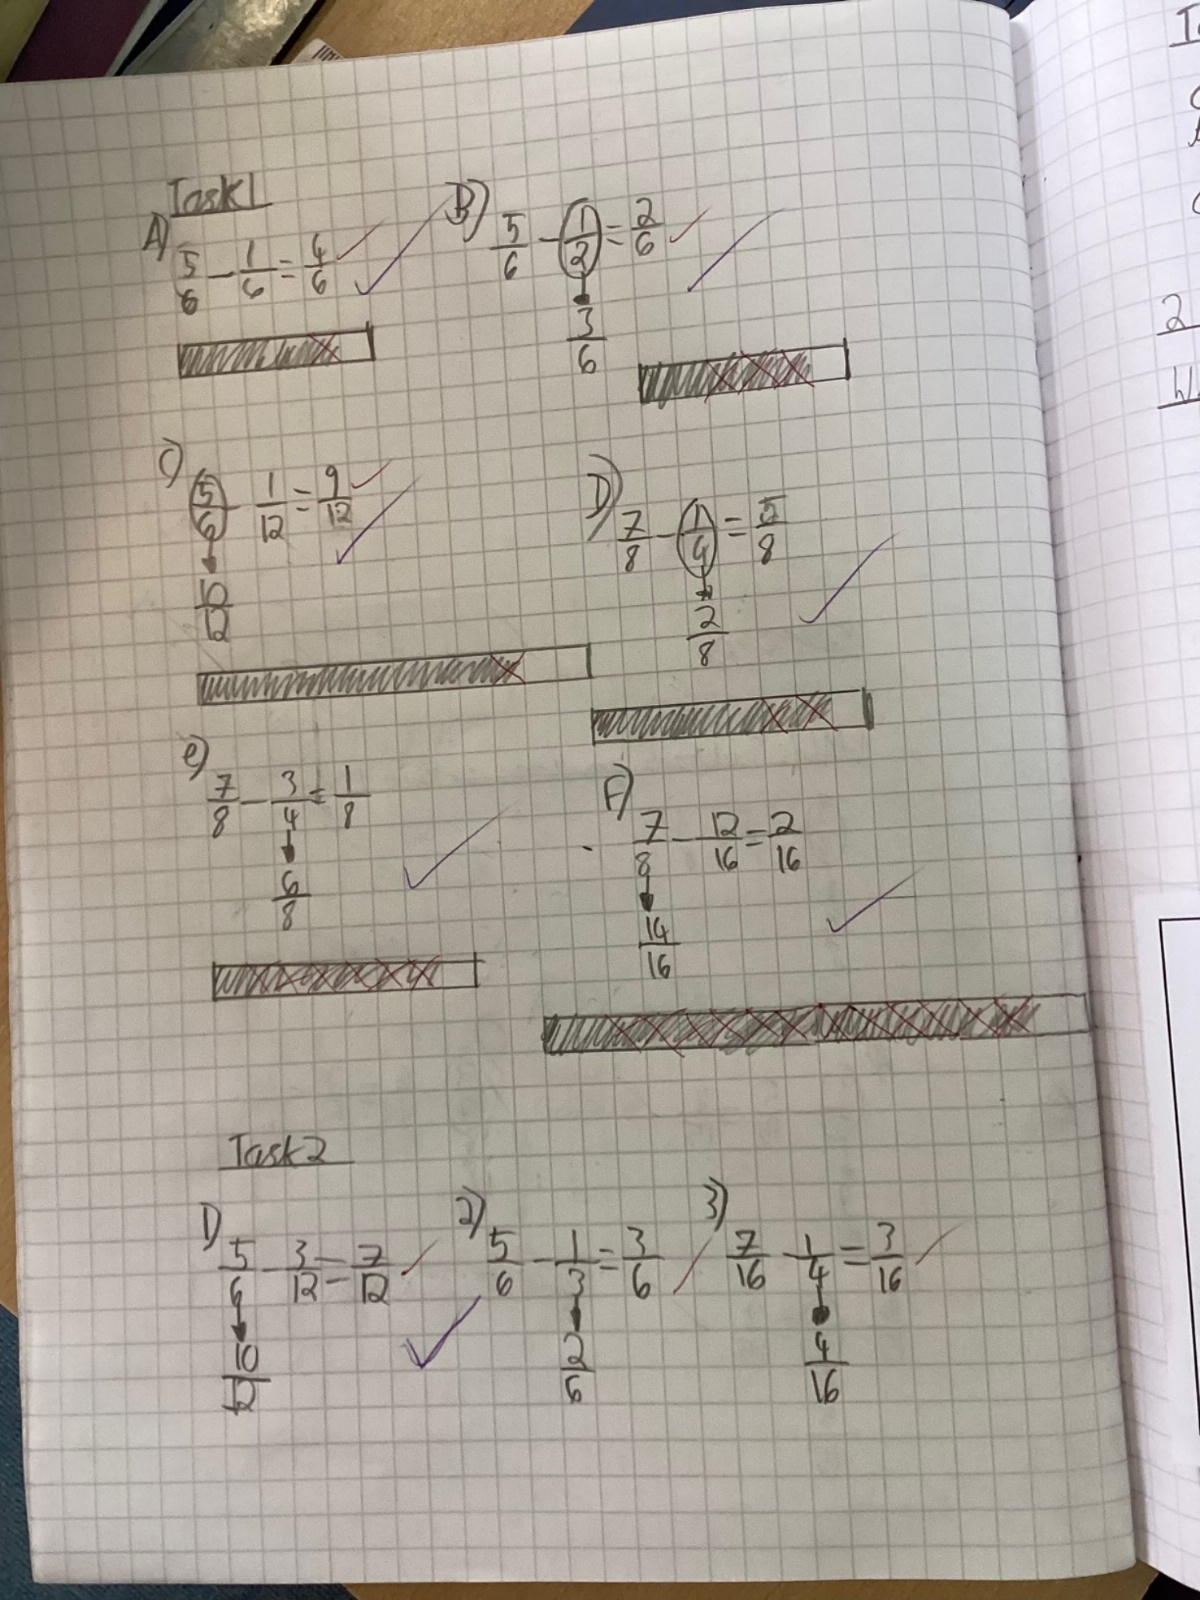 Task 1
A) 5/6 - 1/6 = 4/6
B) 5/6 - 1/2 = 2/6
3/6
C) 5/6 - 1/12 = 9/12
10/12
D) 7/8 - 1/4 = 5/8
2/8
e) 7/8 - 3/4 = 1/8
6/8
F) 7/8 - 12/16 = 2/16
14/16
Task 2
1) 5/6 - 3/12 = 7/12
10/12
2) 5/6 - 1/3 = 3/6
2/6
3) 7/16 - 1/4 = 3/16
4/16
2